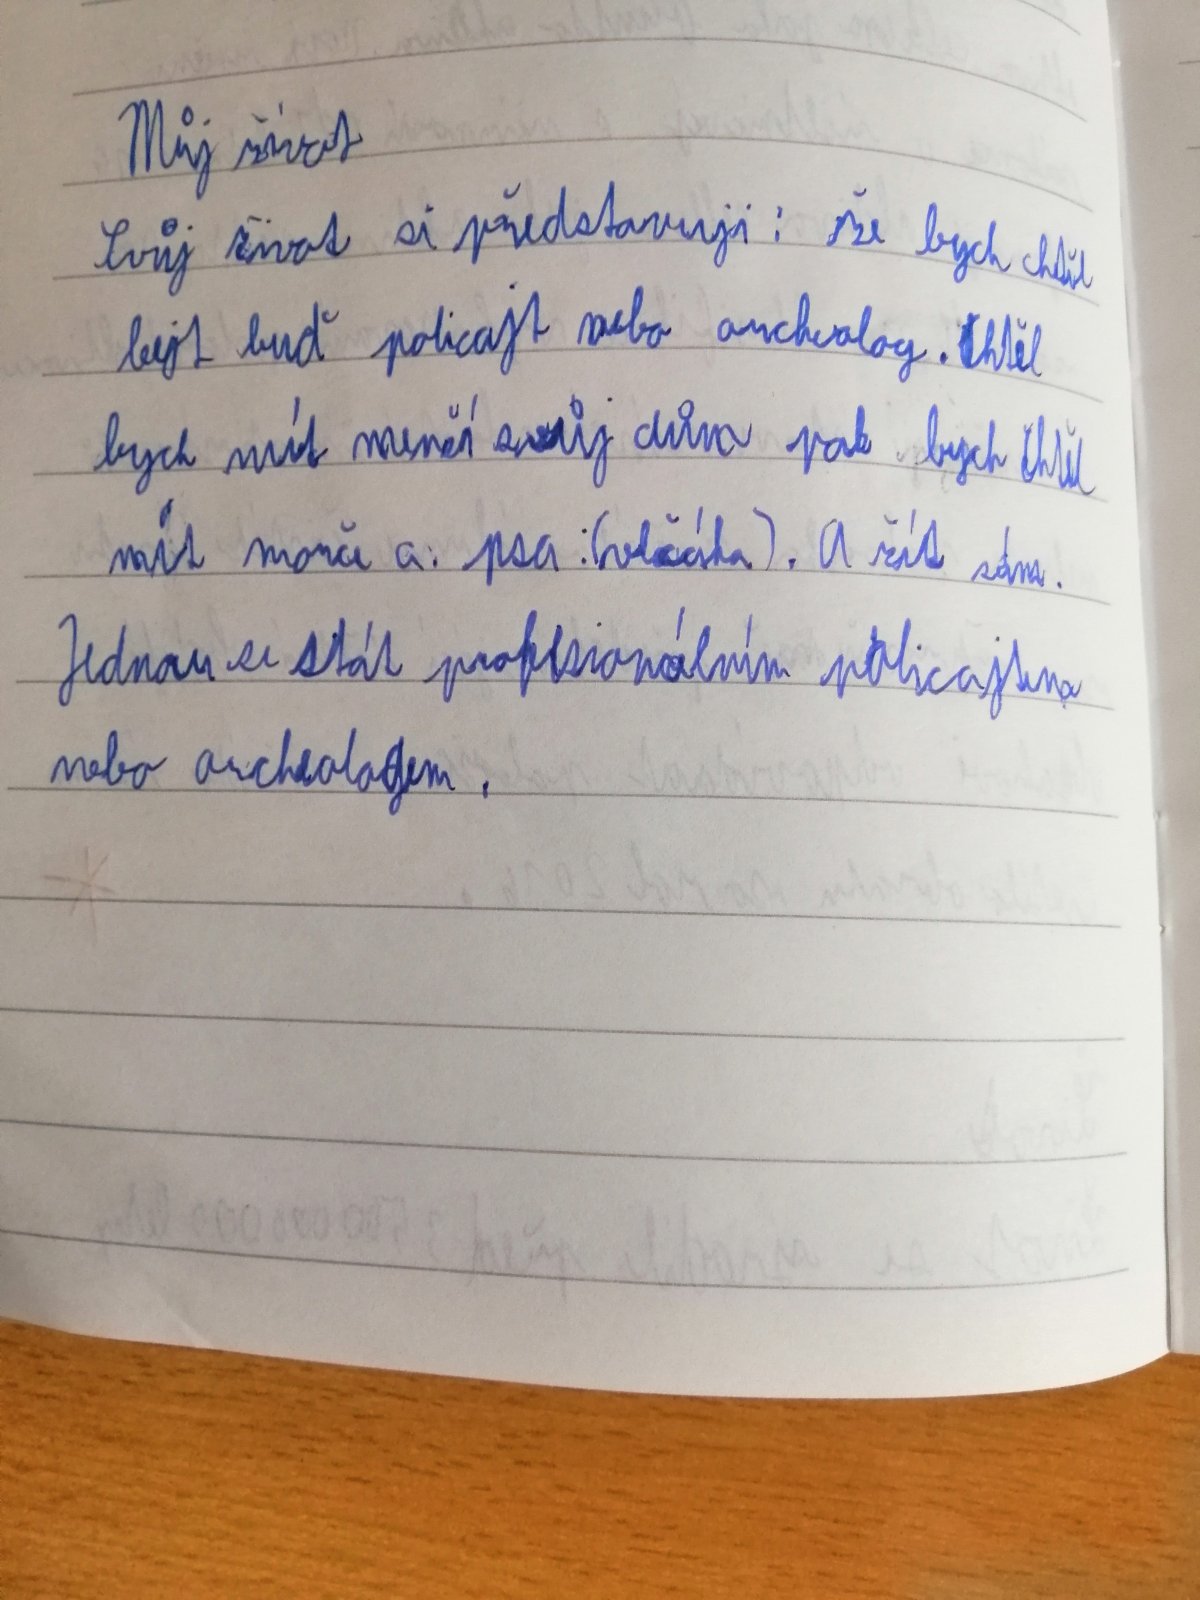 Můj život
Svůj život si představuji: že bych chtěl
bejt buď policajt nebo archeolog. Chtěl
bych mít menší svůj dům pak bych chtěl
mít morče a: psa :(vlčáka). A žít sám.
Jednou se stát profesionálním policajtem
nebo archeologem.